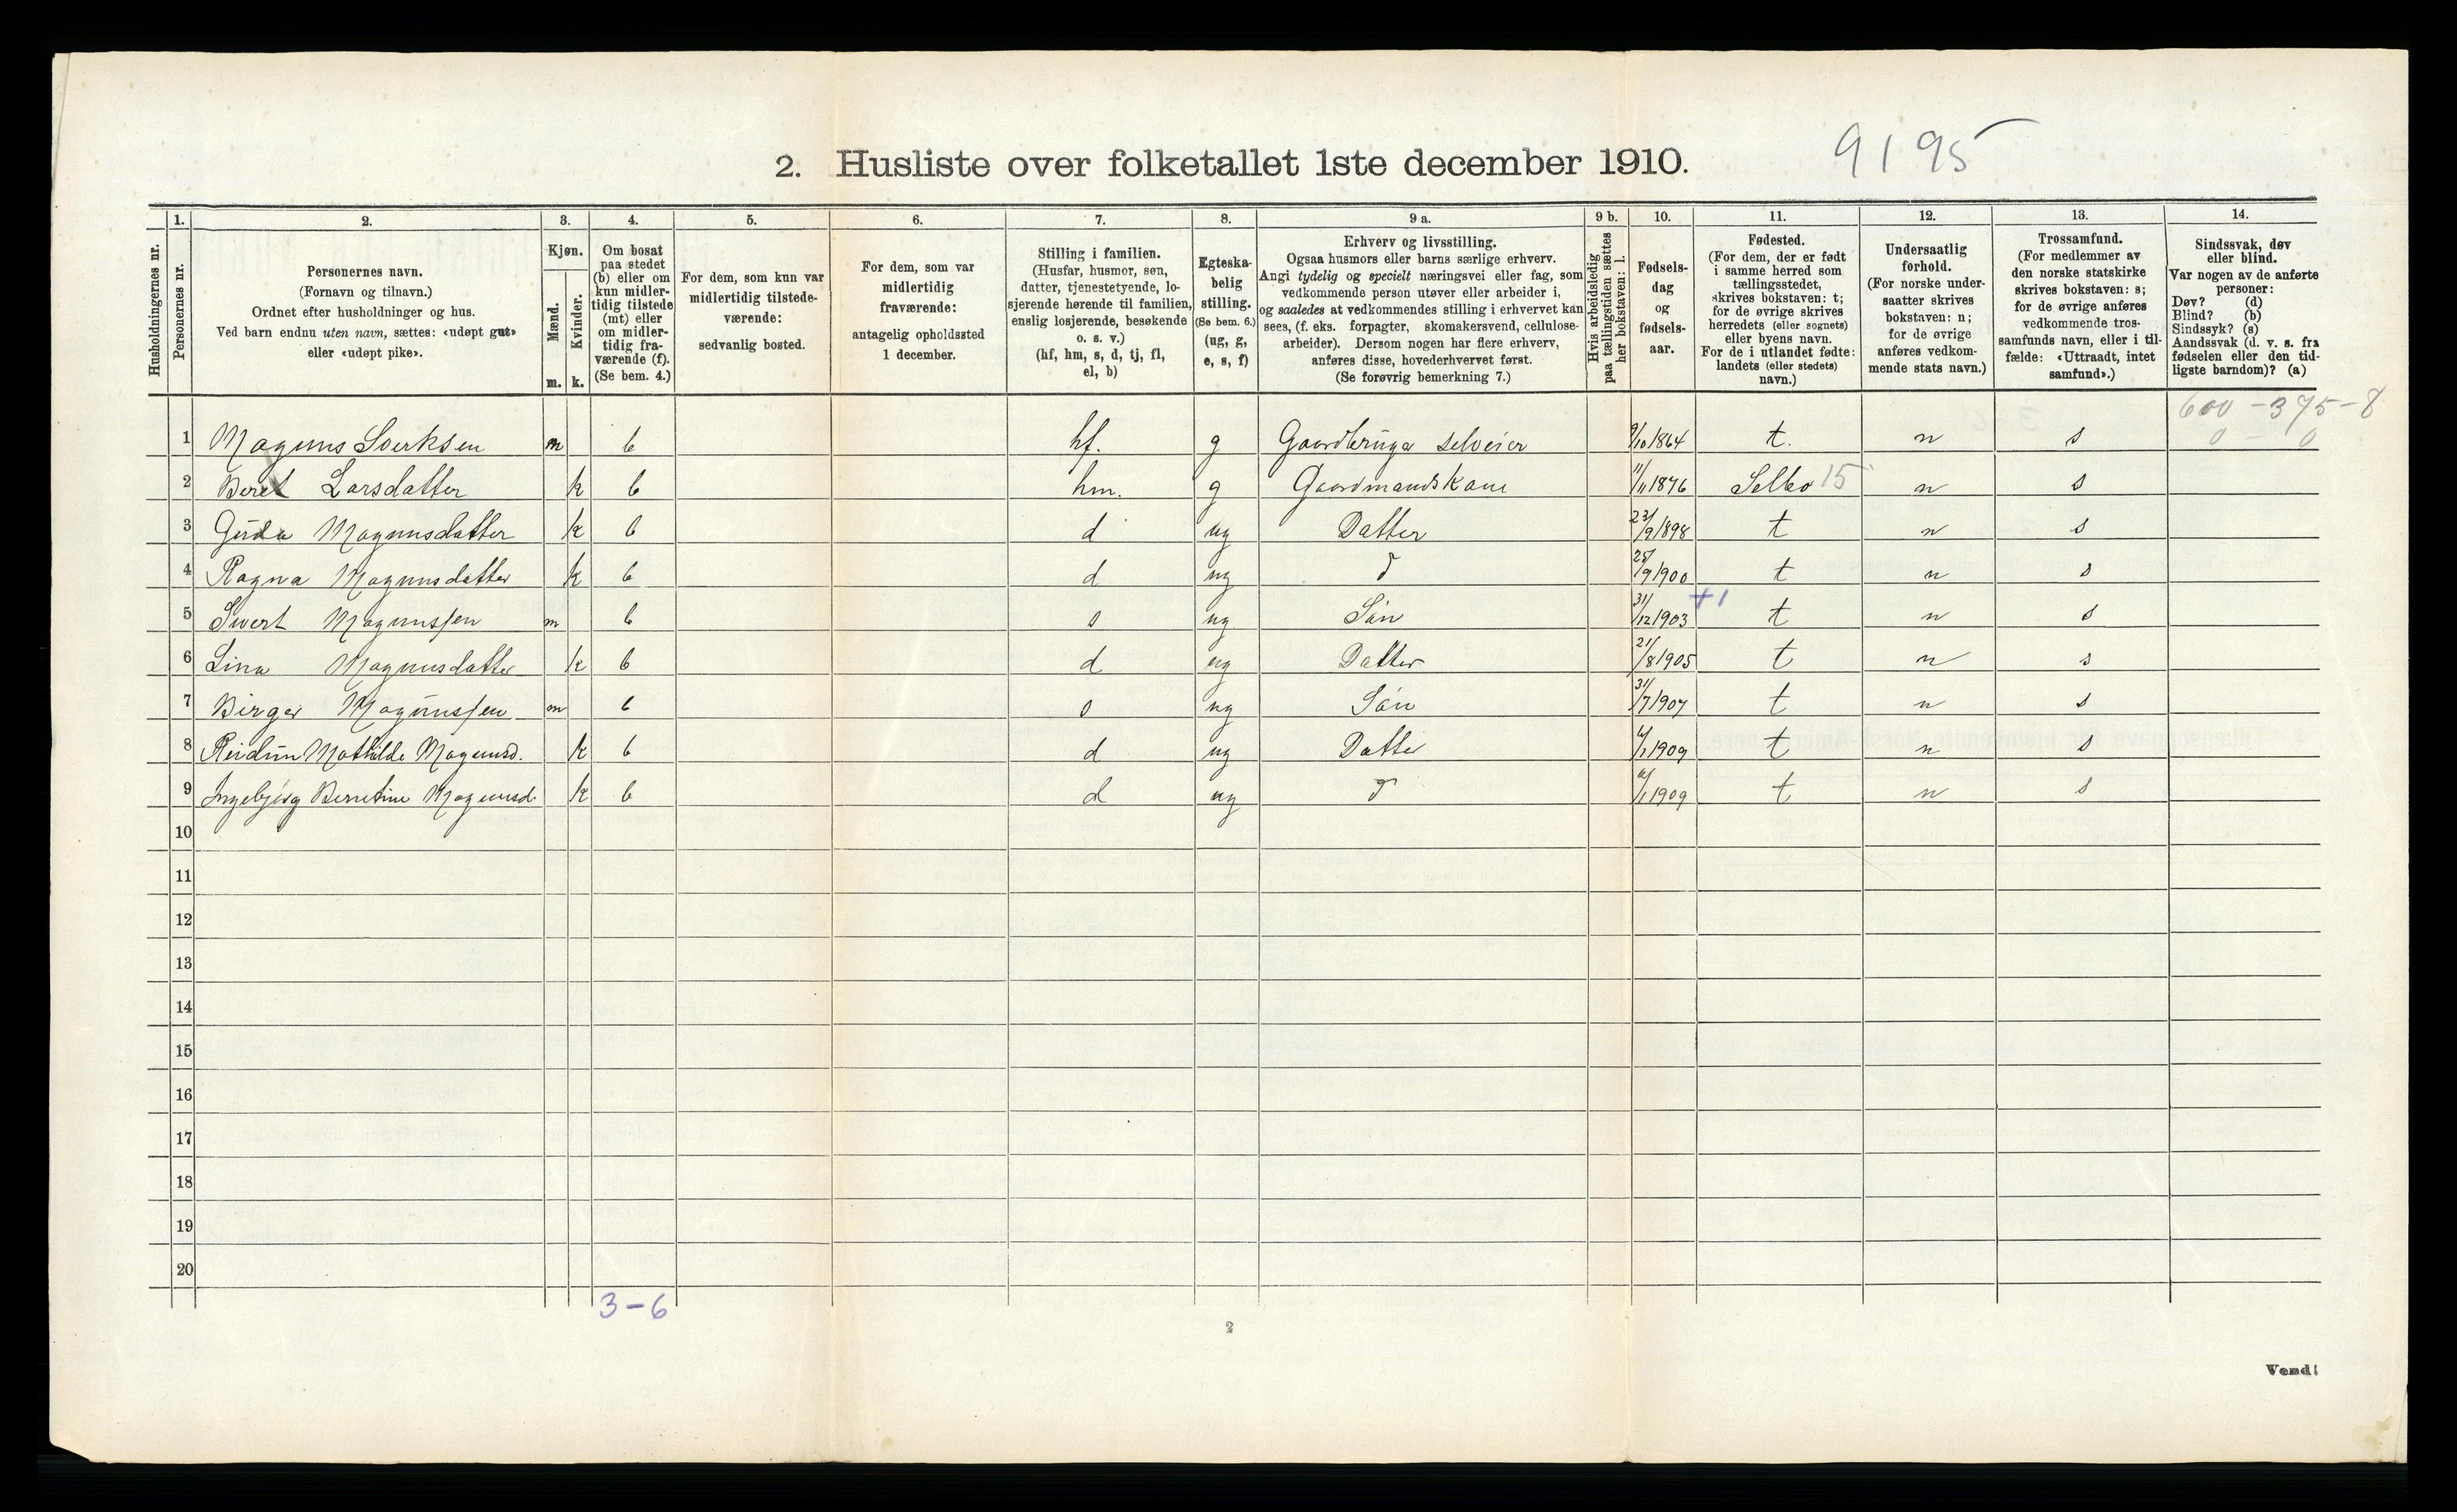 9195
2. Husliste over folketallet 1ste december 1910.
Husholdningernes nr.
1.
Personernes nr.
2.
Personernes navn.
(Fornavn og tilnavn.)
Ordnet efter husholdninger og hus.
Ved barn endnu uten navn, sættes: «udøpt gut»
eller «udøpt pike».
3.
Kjøn.
Mænd.
Kvinder.
m. k.
4.
Om bosat
paa stedet
(b) eller om
kun midler-
tidig tilstede
(mt) eller
om midler-
tidig fra-
værende (f).
(Se bem. 4.)
5.
For dem, som kun var
midlertidig tilstede-
værende:
sedvanlig bosted.
6.
For dem, som var
midlertidig
fraværende:
antagelig opholdssted
1 december.
7.
Stilling i familien.
(Husfar, husmor, søn,
datter, tjenestetyende, lo-
sjerende hørende til familien,
enslig losjerende, besøkende
o. s. v.)
(hf, hm, s, d, tj, fl,
el, b)
8.
Egteska-
belig
stilling.
(Se bem. 6.)
(ug, g,
e, s, f)
9 a.
Erhverv og livsstilling.
Ogsaa husmors eller barns særlige erhverv.
Angi tydelig og specielt næringsvei eller fag, som
vedkommende person utøver eller arbeider i,
og saaledes at vedkommendes stilling i erhvervet kan
sees, (f. eks. forpagter, skomakersvend, cellulose-
arbeider). Dersom nogen har flere erhverv,
anføres disse, hovederhvervet først.
(Se forøvrig bemerkning 7.)
9 b.
Hvis arbeidsledig
paa tællingstiden sættes
her bokstaven: l.
10.
Fødsels-
dag
og
fødsels-
aar.
11.
Fødested.
(For dem, der er født
i samme herred som
tællingsstedet,
skrives bokstaven: t;
for de øvrige skrives
herredets (eller sognets)
eller byens navn.
For de i utlandet fødte:
landets (eller stedets)
navn.)
12.
Undersaatlig
forhold.
(For norske under-
saatter skrives
bokstaven: n;
for de øvrige
anføres vedkom-
mende stats navn.)
13.
Trossamfund.
(For medlemmer av
den norske statskirke
skrives bokstaven: s;
for de øvrige anføres
vedkommende tros-
samfunds navn, eller i til-
fælde: «Uttraadt, intet
samfund».)
14.
Sindssvak, døv
eller blind.
Var nogen av de anførte
personer:
Døv? (d)
Blind? (b)
Sindssyk? (s)
Aandssvak (d. v. s. fra
fødselen eller den tid-
ligste barndom)? (a)
600 - 375 - 8
0 - 0
1 Magnus Sverksen m b hf. g Gaardbruger selveier 9/10 1864 t. n s
2 Beret Larsdatter k b hm. g Gaardmandskone 11/11 1876 Selbo 15 n s
3 Guda Magnusdatter k b d ug Datter 23/9 1898 t n s
4 Ragna Magnusdatter k b d ug d 25/9 1900 t n s
+1
5 Sivert Magnussen m b s ug Søn 31/12 1903 t n s
6 Lina Magnusdatter k b d ug Datter 21/8 1905 t n s
7 Birger Magnussen m b s ug Søn 31/7 1907 t n s
8 Reidun Mathilde Magnusd. k b d ug Datter 6/1 1909 t n s
9 Ingebjørg Berretine Magnusd. k b d ug d 6/1 1909 t n s
10
11
12
13
14
15
16
17
18
19
20
3 - 6
2
Vend!